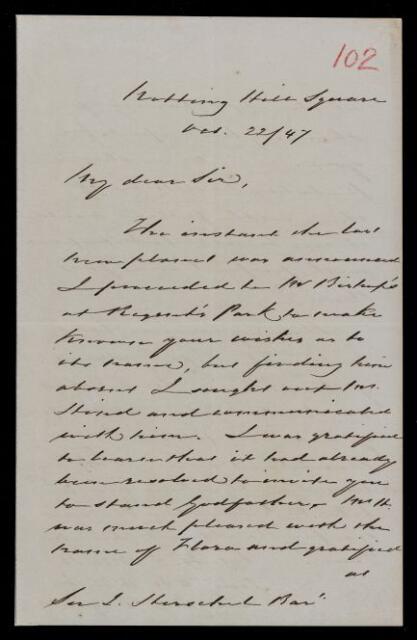 102
Notting Hill Square
Oct. 22/47
My dear Sir,
The instant the last
new planet was announced
I proceeded to Mr Bishop's
at Regent's Park to make
known your wishes as to
its name, but finding him
absent I sought out Mr.
Hind and communicated
with him. I was gratified
to learn that it had already
been resolved to invite you
to stand Godfather. Mr H.
was much pleased with the
name of Flora and gratified
at
Sir J. Herschel Bart